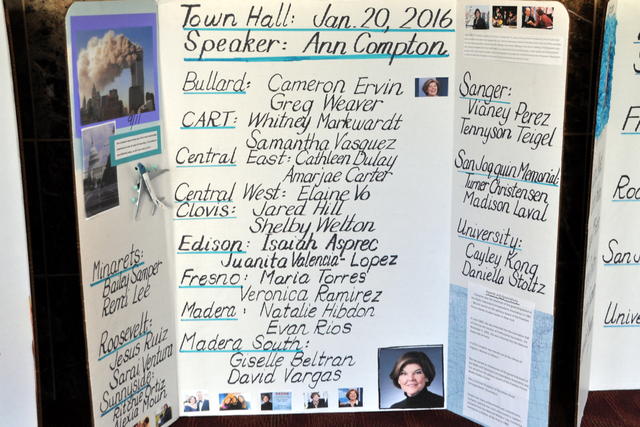 Town Hall: Jan. 20, 2016
Speaker: Ann Compton
Bullard: Cameron Ervin
Greg Weaver
CART: Whitney Markwardt
Samantha Vasquez
Central East: Cathleen Dulay
Amarjae Carter
Central West: Elaine Vo
Clovis: Jared Hill
Shelby Welton
Edison: Isaiah Asprec
Juanita Valencia-Lopez
Fresno: Maria Torres
Veronica Ramirez
Madera: Natalie Hibdon
Evan Rios
Madera South:
Giselle Beltran
David Vargas
9/11
Minarets:
Bailey Samper
Remi Lee
Roosevelt:
Jesus Ruiz
Sarai Ventura
Sunnyside:
Ortiz
Sanger:
Vianey Perez
Tennyson Teigel
San Joaquin Memorial:
Turner Christensen
Madison Laval
University:
Cayley Kong
Daniella Stoltz
F
Roo
San J
Unive